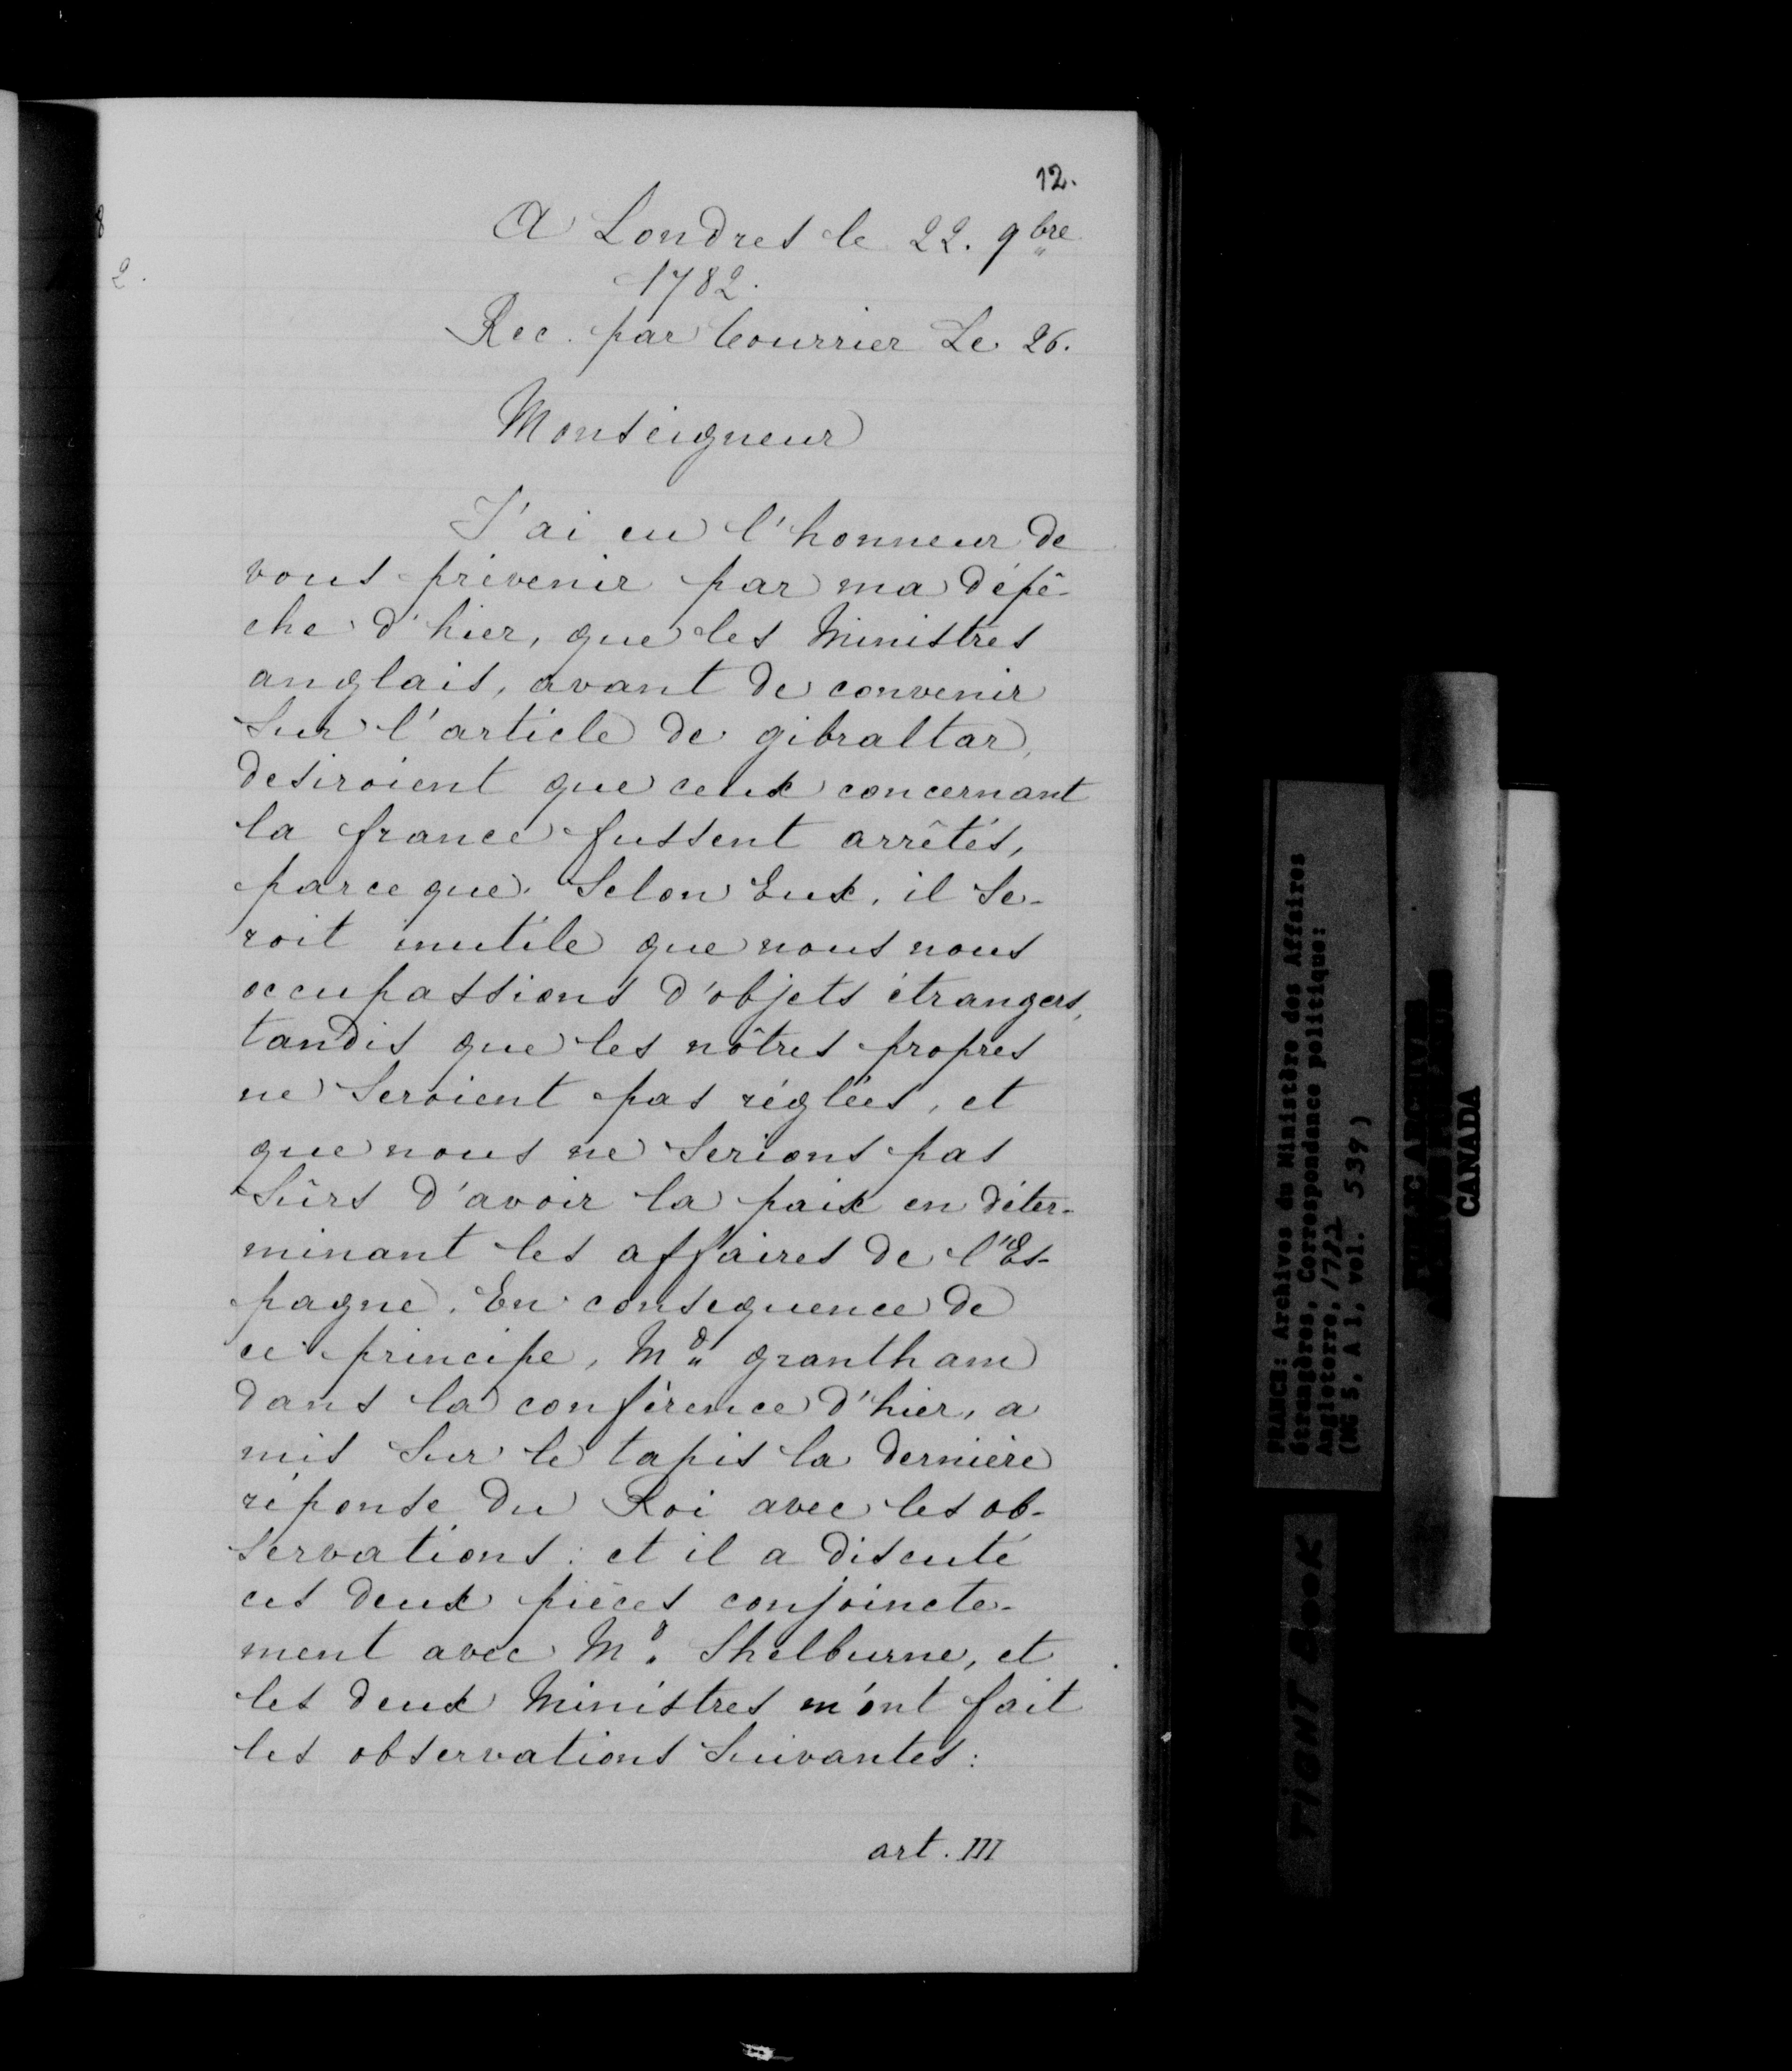 12.
A Londres le 22. 9bre
1782.
Rec. par Courrier Le 26.
Monseigneur
J'ai eu l'honneur de
vous prévenir par ma dépê-
che d'hier, que les Ministres
anglais, avant de convenir
Sur l'article de gibraltar,
desiroient que ceux concernant
la france fussent arrêtés,
parceque. Selon Eux, il Se-
roit inutile que nous nous
occupassions d'objets étrangers,
tandis que les nôtres propres
ne Seroient pas réglées, et
que nous ne Serions pas
Sûrs d'avoir la paix en déter-
minant les affaires de l'Es-
pagne. En consequence de
ce principe, Md grantham
dans la conférence d'hier, a
mis Sur le tapis la dernière
réponse du Roi avec les ob-
servations: et il a discuté
ces deux pièces conjoincte-
ment avec Md. Shelburne, et
les deux Ministres m'ont fait
les observations Suivantes:
art. III
8
2.
FRANCE: Archives du Ministère des Affaires
étrangères, Correspondance politique:
Angleterre, 1782
(MG 5, A 1, vol. 539)
CANADA
TIGHT BOOK